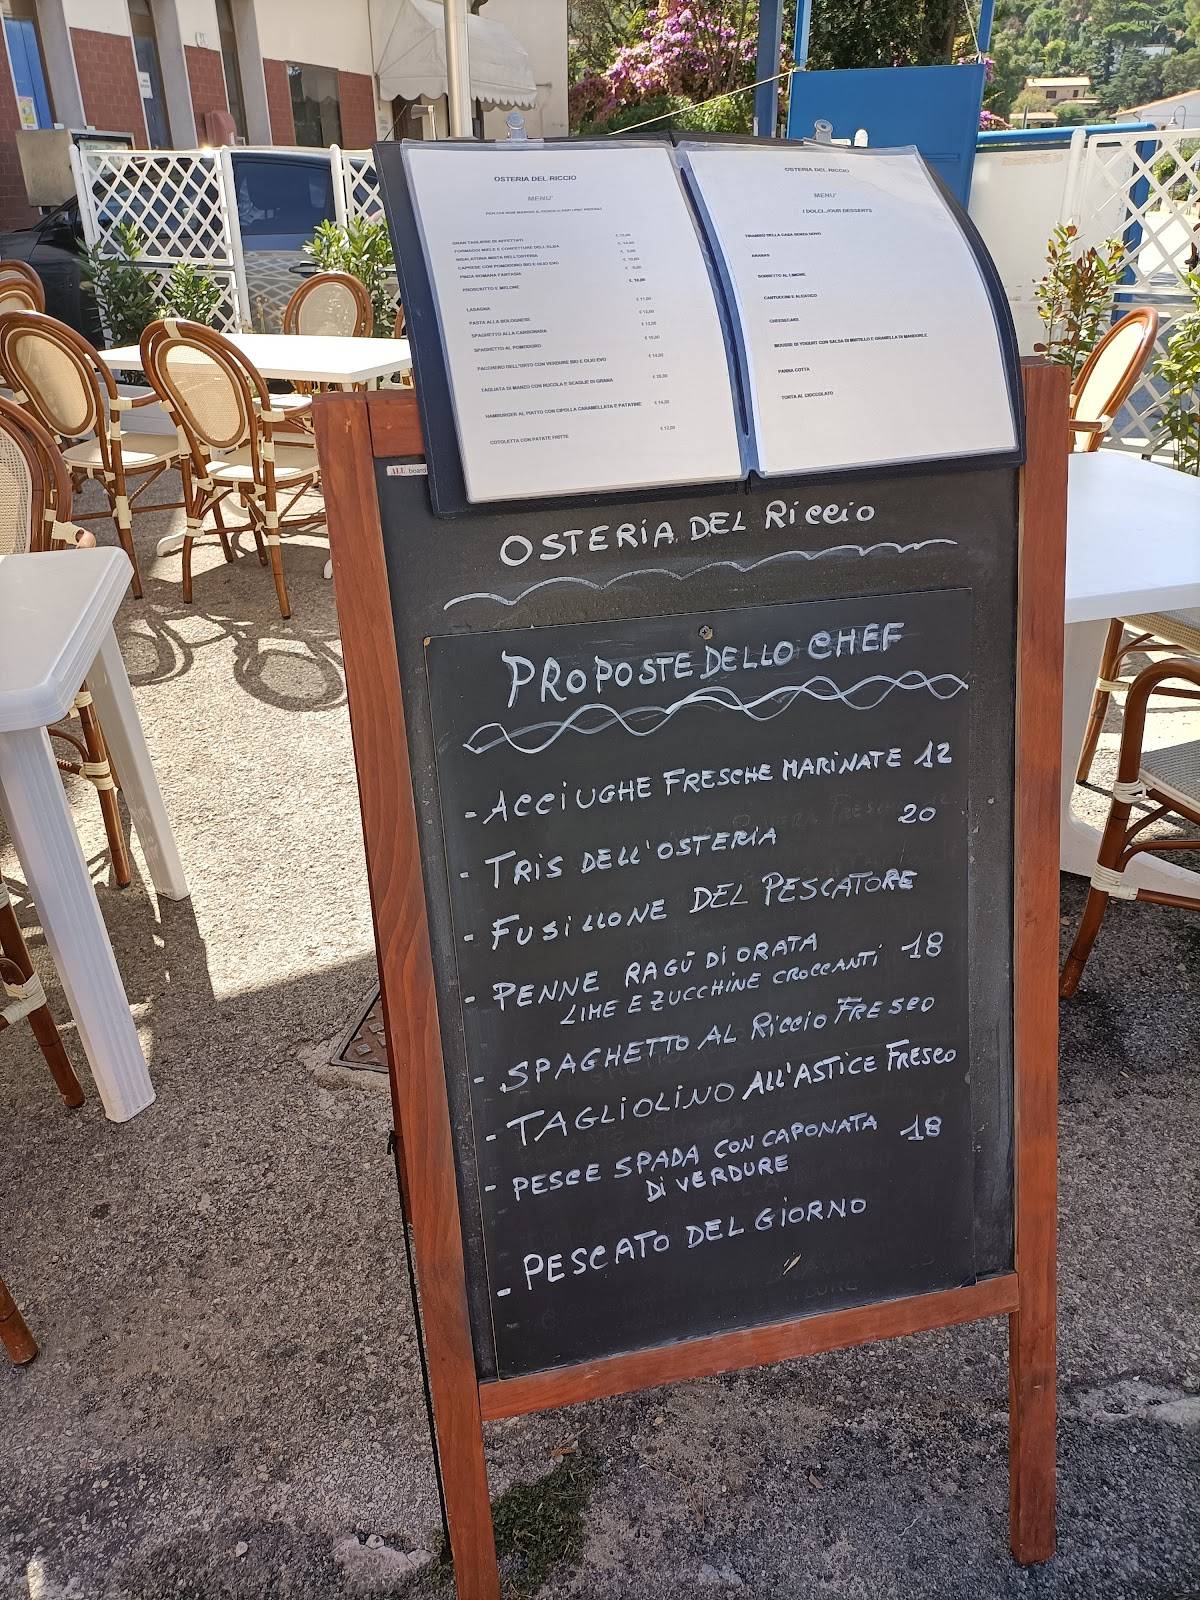 OSTERIA DEL RICCIO
MENU'
GRAN TAGLIERE DI AFFETTATI
FORMAGGI MIELE E CONFETTURE DELL'ELBA
INSALATONA MISTA DELL'OSTERIA
CAPRESE CON POMODORO BIO E OLIO EVO
PINZA ROMANA FANTASIA
PROSCIUTTO E MELONE € 10,00
LASAGNA € 11,00
PASTA ALLA BOLOGNESE € 12,00
SPAGHETTO ALLA CARBONARA € 12,00
SPAGHETTO AL POMODORO € 10,00
PACCHERO DELL'ORTO CON VERDURE BIO E OLIO EVO € 14,00
TAGLIATA DI MANZO CON RUCOLA E SCAGLIE DI GRANA € 20,00
HAMBURGER AL PIATTO CON CIPOLLA CARAMELLATA E PATATINE € 14,00
COTOLETTA CON PATATE FRITTE € 12,00
OSTERIA DEL RICCIO
MENU'
I DOLCI..JOUR DESSERTS
TIRAMISU DELLA CASA SENZA UOVO
ANANAS
SORBETTO AL LIMONE
CANTUCCINI E ALEATICO
CHEESECAKE
MOUSSE DI YOGURT CON SALSA DI MIRTILLO E GRANELLA DI MANDORLE
PANNA COTTA
TORTA AL CIOCCOLATO
ALL board
OSTERIA DEL RICCIO
PROPOSTE DELLO CHEF
- ACCIUGHE FRESCHE MARINATE 12
- TRIS DELL'OSTERIA 20
- FUSILLONE DEL PESCATORE
- PENNE RAGÙ DI ORATA 18
LIME E ZUCCHINE CROCCANTI
- SPAGHETTO AL RICCIO FRESCO
- TAGLIOLINO ALL'ASTICE FRESCO
- PESCE SPADA CON CAPONATA 18
DI VERDURE
- PESCATO DEL GIORNO